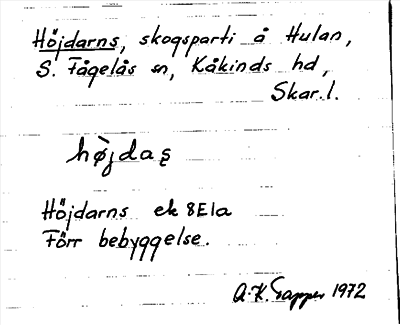 Höjdarns, skogsparti å Hulan,
S. Fågelås sn, Kåkinds hd,
Skar. l.
hø̀jdaʂ
Höjdarns ek 8E1a
Förr bebyggelse.
A.-K. 1972